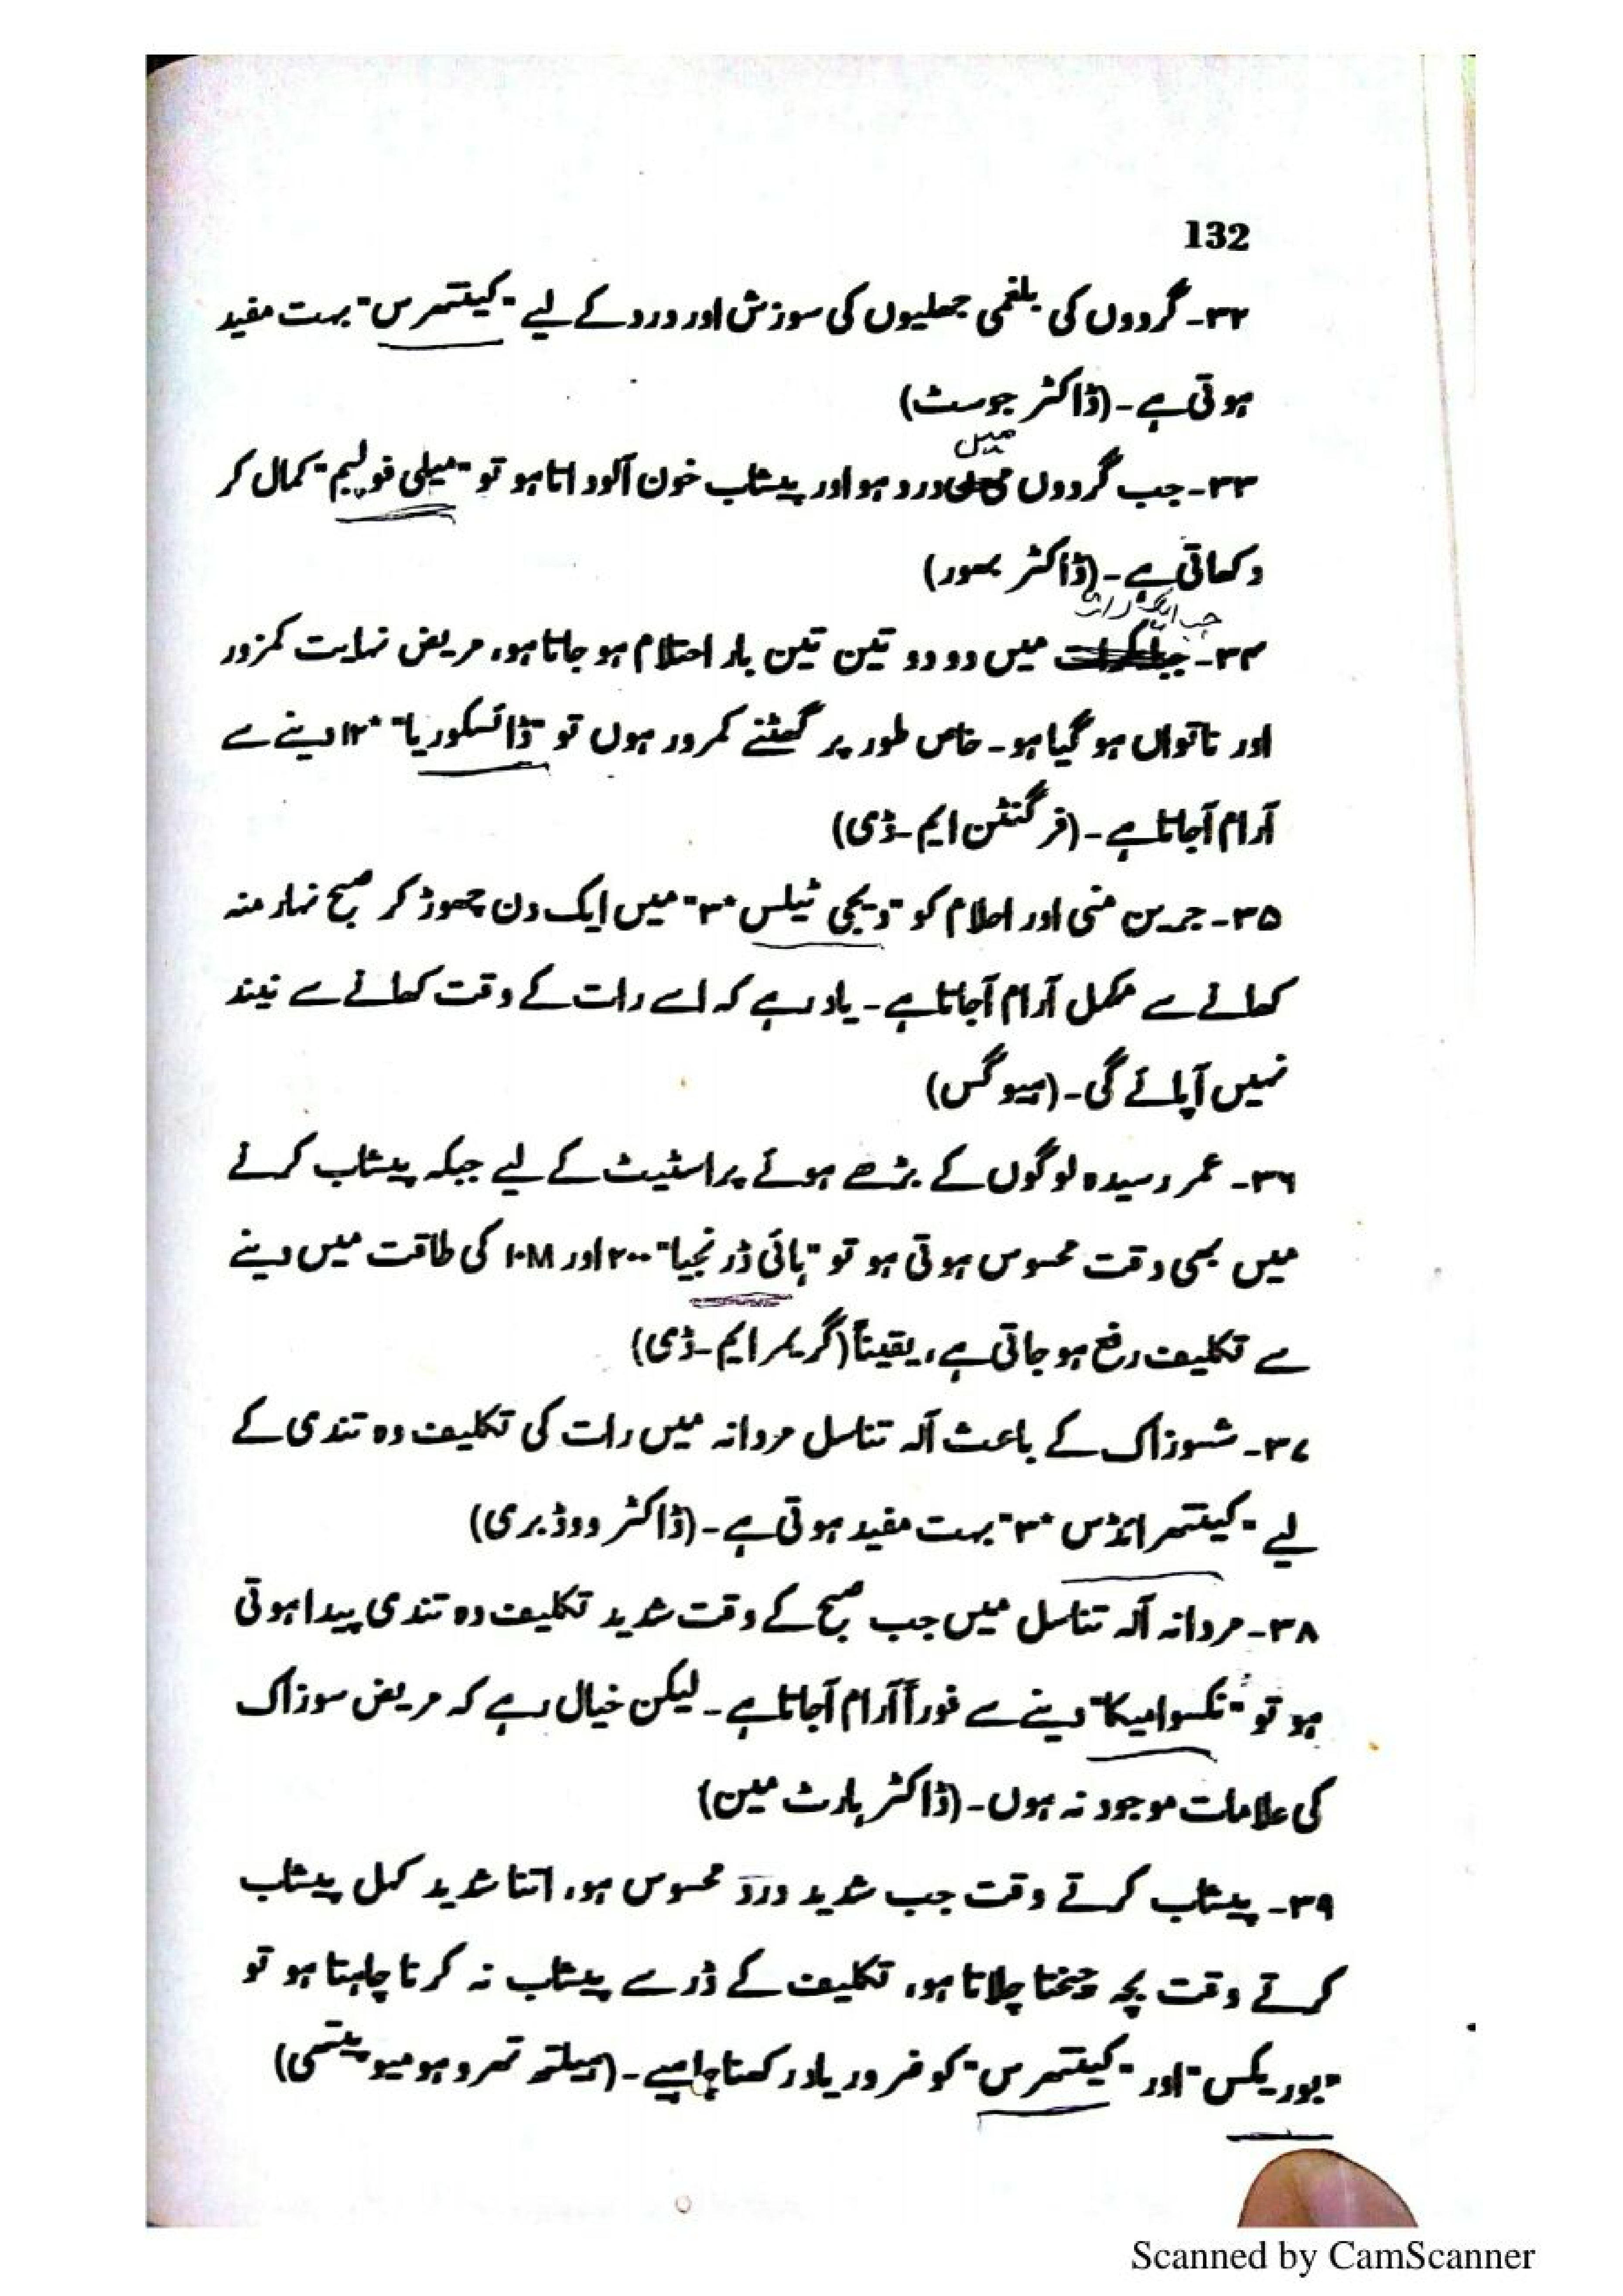 132
۳۲۔ گردوں کی بلغمی جھلیوں کی سوزش اور درد کے لیے "کینتھرس" بہت مفید
ہوتی ہے۔ (ڈاکٹر جوسٹ)
میں
۳۳۔ جب گردوں درد ہو اور پیشاب خون آلود اتا ہو تو "میلی فولیم" کمال کر
دکھاتی ہے۔ (ڈاکٹر)
جب ایک رات
۳۴۔ میں دو دو تین تین بار احتلام ہو جاتا ہو، مریض نہایت کمزور
اور ناتواں ہو گیا ہو۔ خاص طور پر گھٹنے کمرور ہوں تو "ڈائسکوریا" ۱۲ دینے سے
آرام آجاتا ہے۔ (فرگنٹن ایم۔ڈی)
۳۵۔ جریں منی اور احلام کو "ڈیجی ٹیلس ۳" میں ایک دن چھوڑ کر صبح نہار منہ
کھانے سے مکمل آرام آجاتا ہے۔ یاد رہے کہ اسے رات کے وقت کھانے سے نیند
نہیں آپائے گی۔ (ہیوگس)
۳۶۔ عمر رسیدہ لوگوں کے بڑھے ہوئے پراسٹیٹ کے لیے جبکہ پیشاب کرنے
میں بھی دقت محسوس ہوتی ہو تو "ہائی ڈرنجیا" ۲۰۰ اور ۱۰M کی طاقت میں دینے
سے تکلیف رفع ہو جاتی ہے، یقیناً (گریمر ایم۔ڈی)
۳۷۔ سوزاک کے باعث آلہ تناسل مردانہ میں رات کی تکلیف دہ تندی کے
لیے "کینتھرائڈس ۳" بہت مفید ہوتی ہے۔ (ڈاکٹر ووڈبری)
۳۸۔ مردانہ آلہ تناسل میں جب صبح کے وقت شدید تکلیف دہ تندی پیدا ہوتی
ہو تو "نکسوامیکا" دینے سے فوراً آرام آجاتا ہے۔ لیکن خیال رہے کہ مریض سوزاک
کی علامات موجود نہ ہوں۔ (ڈاکٹر ہارٹ مین)
۳۹۔ پیشاب کرتے وقت جب شدید درد محسوس ہو، اتنا شدید کہ پیشاب
کرتے وقت بچہ چیختا چلاتا ہو، تکلیف کے ڈر سے پیشاب نہ کرنا چاہتا ہو تو
"بوریکس" اور "کینتھرس" کو ضرور یاد رکھنا چاہیے۔ (ہیلتھ تھرو ہومیوپیتھی)
Scanned by CamScanner